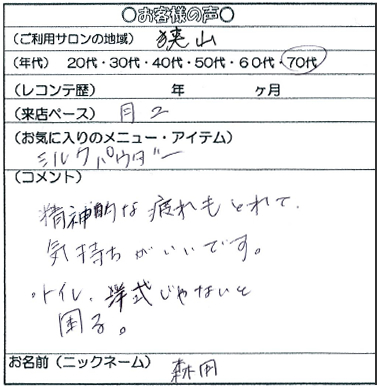 ○お客様の声○
（ご利用サロンの地域） 狭山
（年代） 20代・30代・40代・50代・60代・70代
（レコンテ歴） 年 ヶ月
（来店ペース） 月2
（お気に入りのメニュー・アイテム）
ミルクパウダー
（コメント）
精神的な疲れもとれて、
気持ちがいいです。
・トイレ、洋式じゃないと
困る。
お名前（ニックネーム） 森田